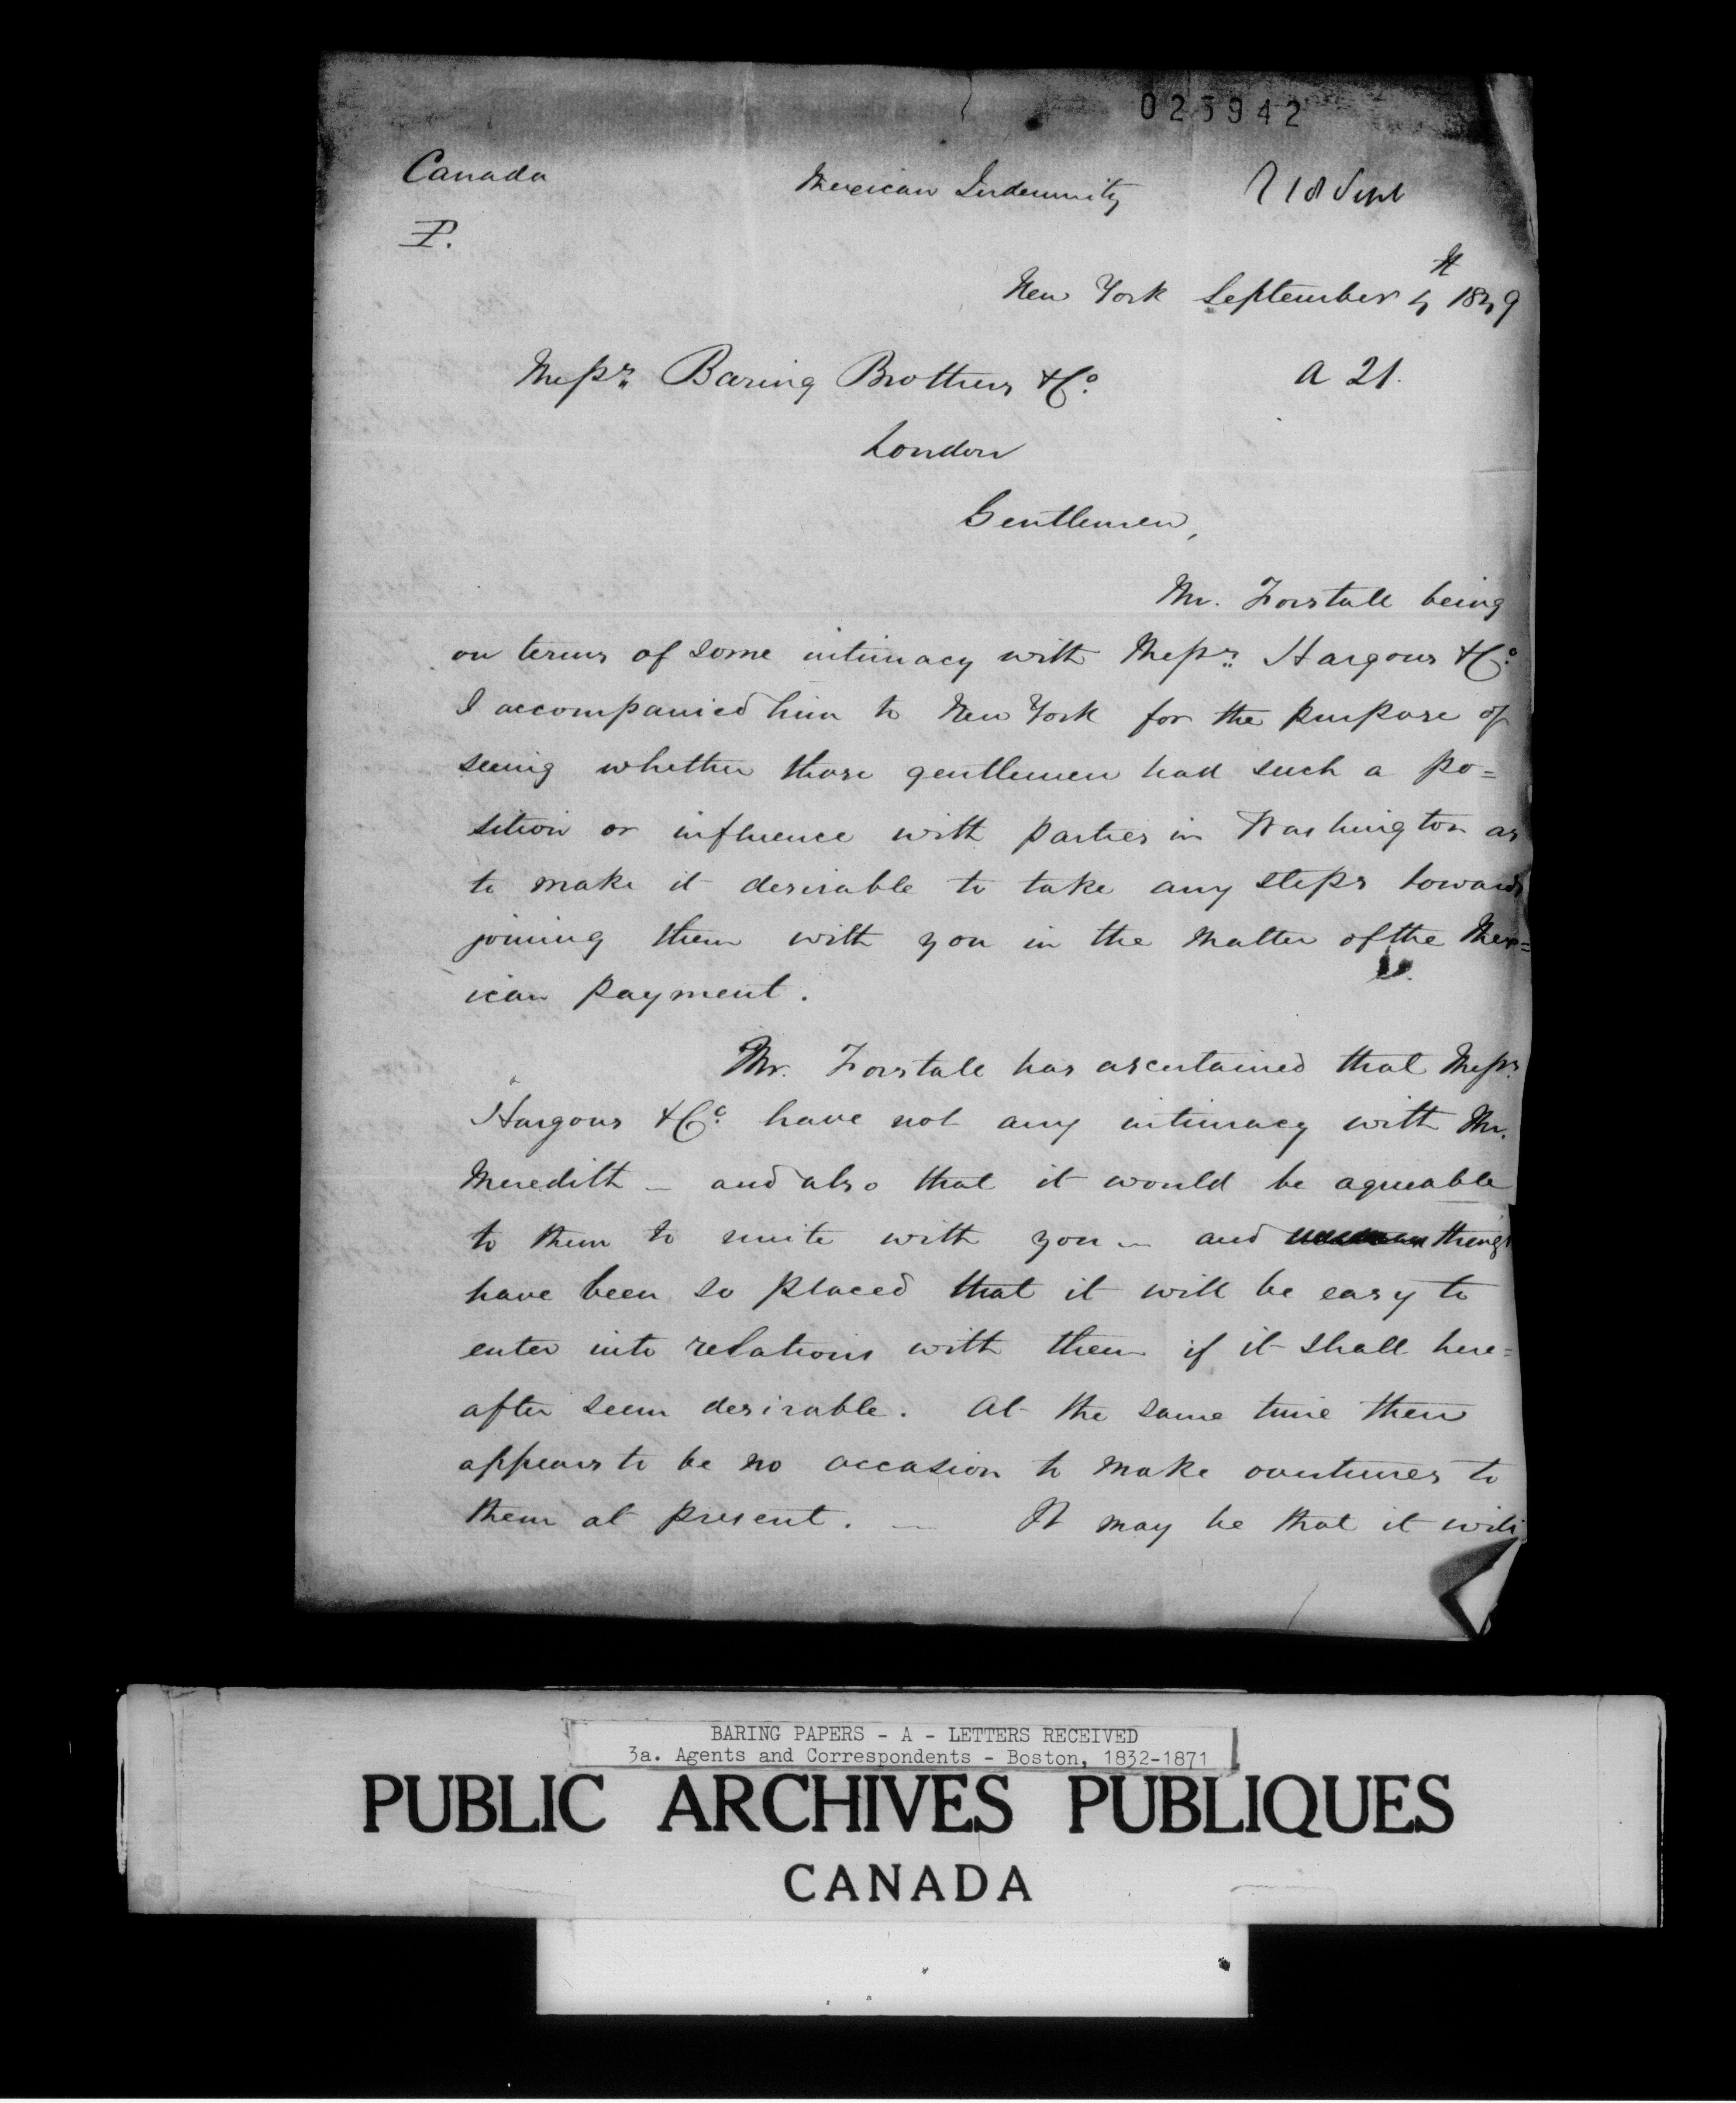 025942
Canada Mexican Indemnity 18 Sept
P.
New York September 4th 1849
Messrs Baring Brothers & Co. A 21.
London
Gentlemen,
Mr. Forstall being
on terms of some intimacy with Messrs Hargous & Co.
I accompanied him to New York for the purpose of
seeing whether those gentlemen had such a po=
sition or influence with parties in Washington as
to make it desirable to take any steps towards
joining them with you in the matter of the Mex=
ican payment.
Mr. Forstall has ascertained that Messrs
Hargous & Co. have not any intimacy with Mr.
Meredith – and also that it would be agreeable
to them to unite with you – and things
have been so placed that it will be easy to
enter into relations with them if it shall here=
after seem desirable. At the same time there
appears to be no occasion to make overtures to
them at present. – It may be that it will
BARING PAPERS - A - LETTERS RECEIVED
3a. Agents and Correspondents - Boston, 1832-1871
PUBLIC ARCHIVES PUBLIQUES
CANADA